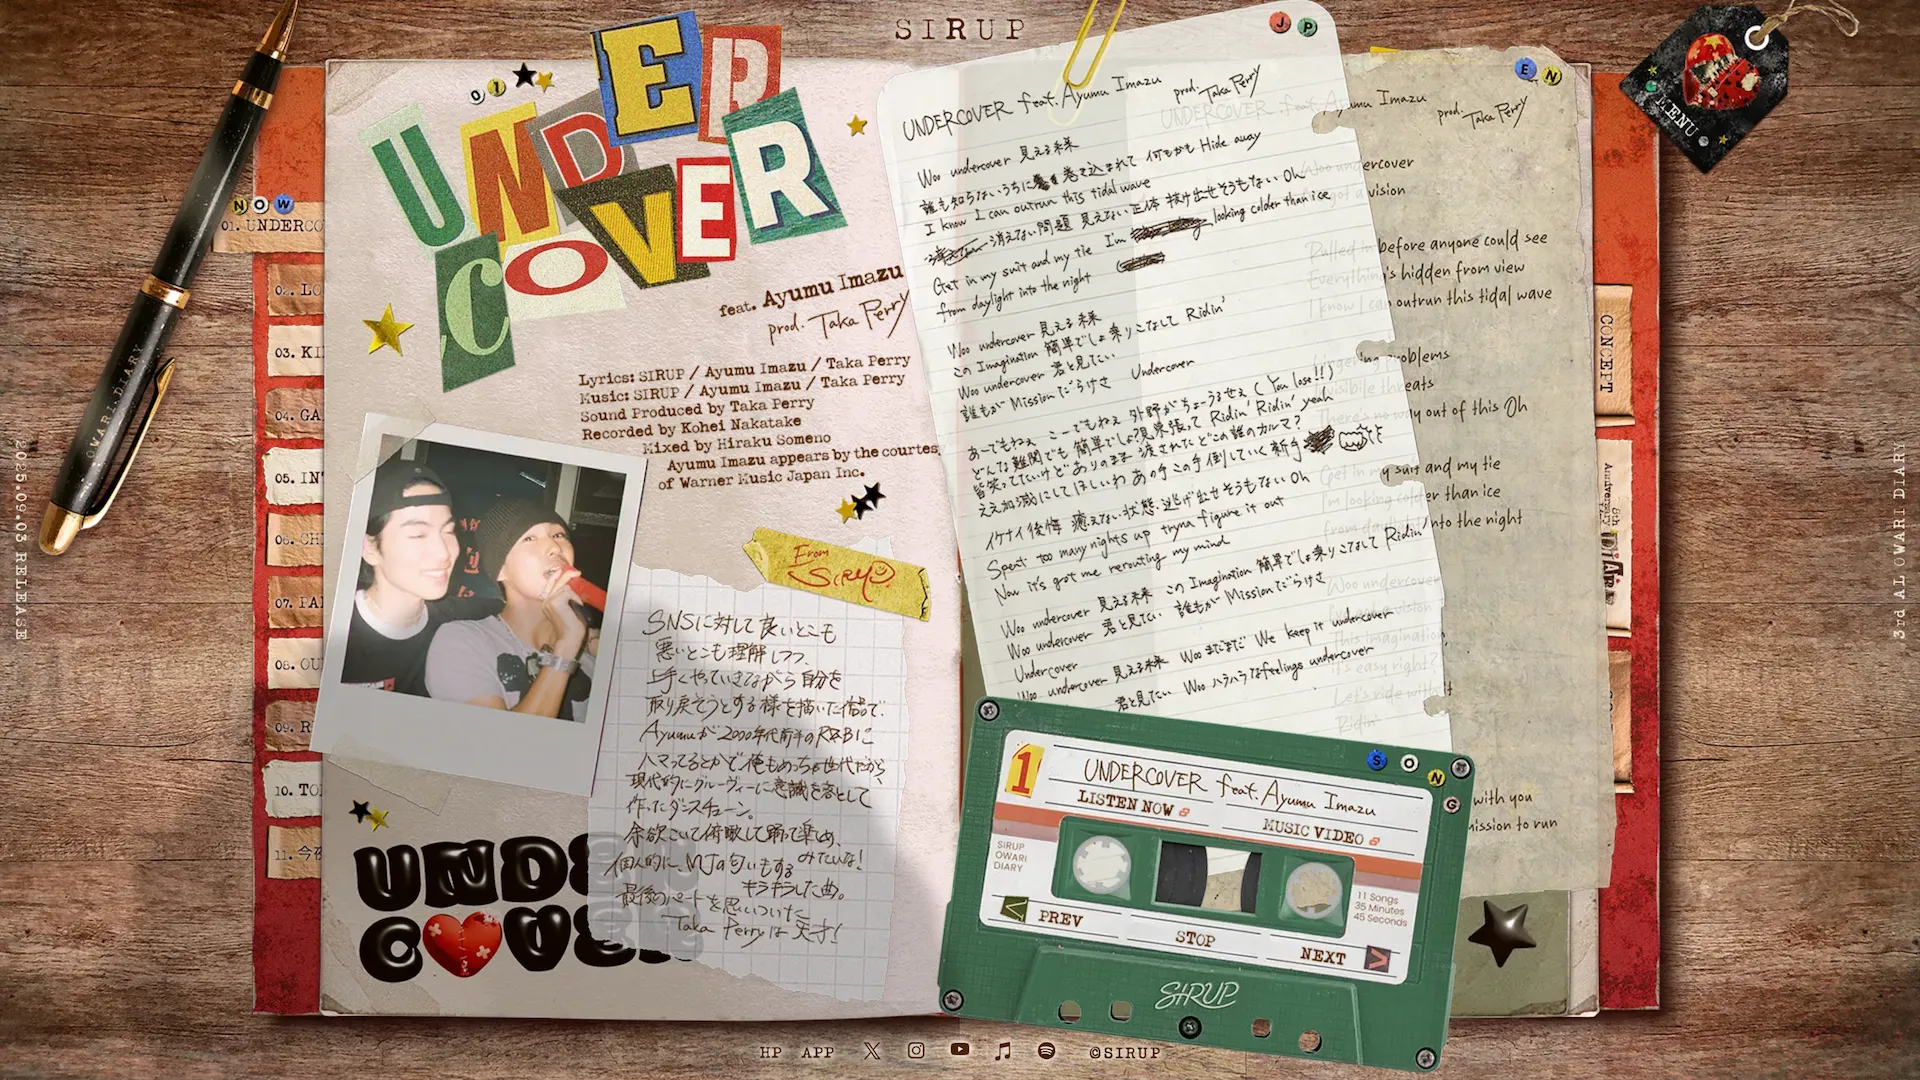 SIRUP
J P
E N
MENU
2025.09.03 RELEASE
3rd AL OWARI DIARY
OWARI DIARY
NOW
01. UNDERCO
02. LO
03. KI
04. GA
05. IN
06. CH
07. PA
08. OU
09. R
10. TO
11. 今夜
CONCEPT
01
UNDER
COVER
feat. Ayumu Imazu
prod. Taka Perry
Lyrics: SIRUP / Ayumu Imazu / Taka Perry
Music: SIRUP / Ayumu Imazu / Taka Perry
Sound Produced by Taka Perry
Recorded by Kohei Nakatake
Mixed by Hiraku Someno
Ayumu Imazu appears by the courtes
of Warner Music Japan Inc.
From
SIRUP
SNSに対して良いとこも
悪いとこも理解しつつ、
上手くやっていきながら自分を
取り戻そうとする様を描いた作品で、
Ayumuが2000年代前半のR&Bに
ハマってるとかで俺もめっちゃ世代だから
現代的にグルーヴィーに意識を落として
作ったダンスチューン。
余欲こいて俯瞰して踊って楽しめ、
みたいな!
個人的に、MJの匂いもする
キラキラした曲。
最後のパートを思いついた
Taka Perryは天才!
UNDE
COVE
UNDERCOVER feat. Ayumu Imazu prod. Taka Perry
Woo undercover 見える未来
誰も知らないうちに巻き込まれて 何もかも Hide away
I know I can outrun this tidal wave
消えない問題 見えない正体 抜け出せそうもない Oh
Get in my suit and my tie I'm looking colder than ice
from daylight into the night
Woo undercover 見える未来
この Imagination 簡単でしょ 乗りこなして Ridin'
Woo undercover 君と見てたい
誰もが Mission だらけさ Undercover
あーでもねぇ こーでもねぇ 外野がちょーうるせぇ (You lose!!)
どんな難関でも 簡単でしょ 視界張って Ridin' Ridin' yeah
皆笑ってたいけど ありのまま 渡されたどこの誰のカルマ?
ええ加減にしてほしいわ あの手この手 倒していく新手
イケナイ後悔 癒えない状態 逃げ出せそうもない Oh
Spent too many nights up tryna figure it out
Now it's got me rerouting my mind
Woo undercover 見える未来 この Imagination 簡単でしょ 乗りこなして Ridin'
Woo undercover 君と見てたい 誰もが Mission だらけさ
Undercover
Woo undercover 見える未来 Woo まだまだ We keep it undercover
君と見てたい Woo ハラハラな feelings undercover
UNDERCOVER feat. Ayumu Imazu
prod. Taka Perry
Woo undercover
I've got a vision
Pulled in before anyone could see
Everything's hidden from view
I know I can outrun this tidal wave
Lingering problems
Invisibile threats
There's no way out of this Oh
Get in my suit and my tie
I'm looking colder than ice
from daylight into the night
Woo undercover
I've got a vision
This imagination
it's easy right?
Let's ride with it
Ridin'
with you
mission to run
SONG
1
UNDERCOVER feat. Ayumu Imazu
LISTEN NOW
MUSIC VIDEO
SIRUP
OWARI
DIARY
11 Songs
35 Minutes
45 Seconds
PREV
STOP
NEXT
SIRUP
HP APP ©SIRUP